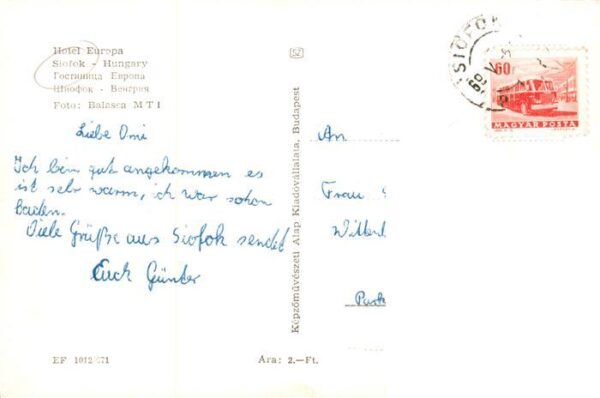 Hotel Europa
Siofok - Hungary
Гостиница Европа
Шиофок - Венгрия
Foto: Balassa MTI
Liebe Omi
Ich bin gut angekommen es
ist sehr warm, ich war schon
baden.
Viele Grüße aus Siofok sendet
Euch Günter
EF 1012/671
Ara: 2.—Ft.
Képzőművészeti Alap Kiadóvállalata, Budapest
An
Frau
SIÓFOK
60f
MAGYAR POSTA